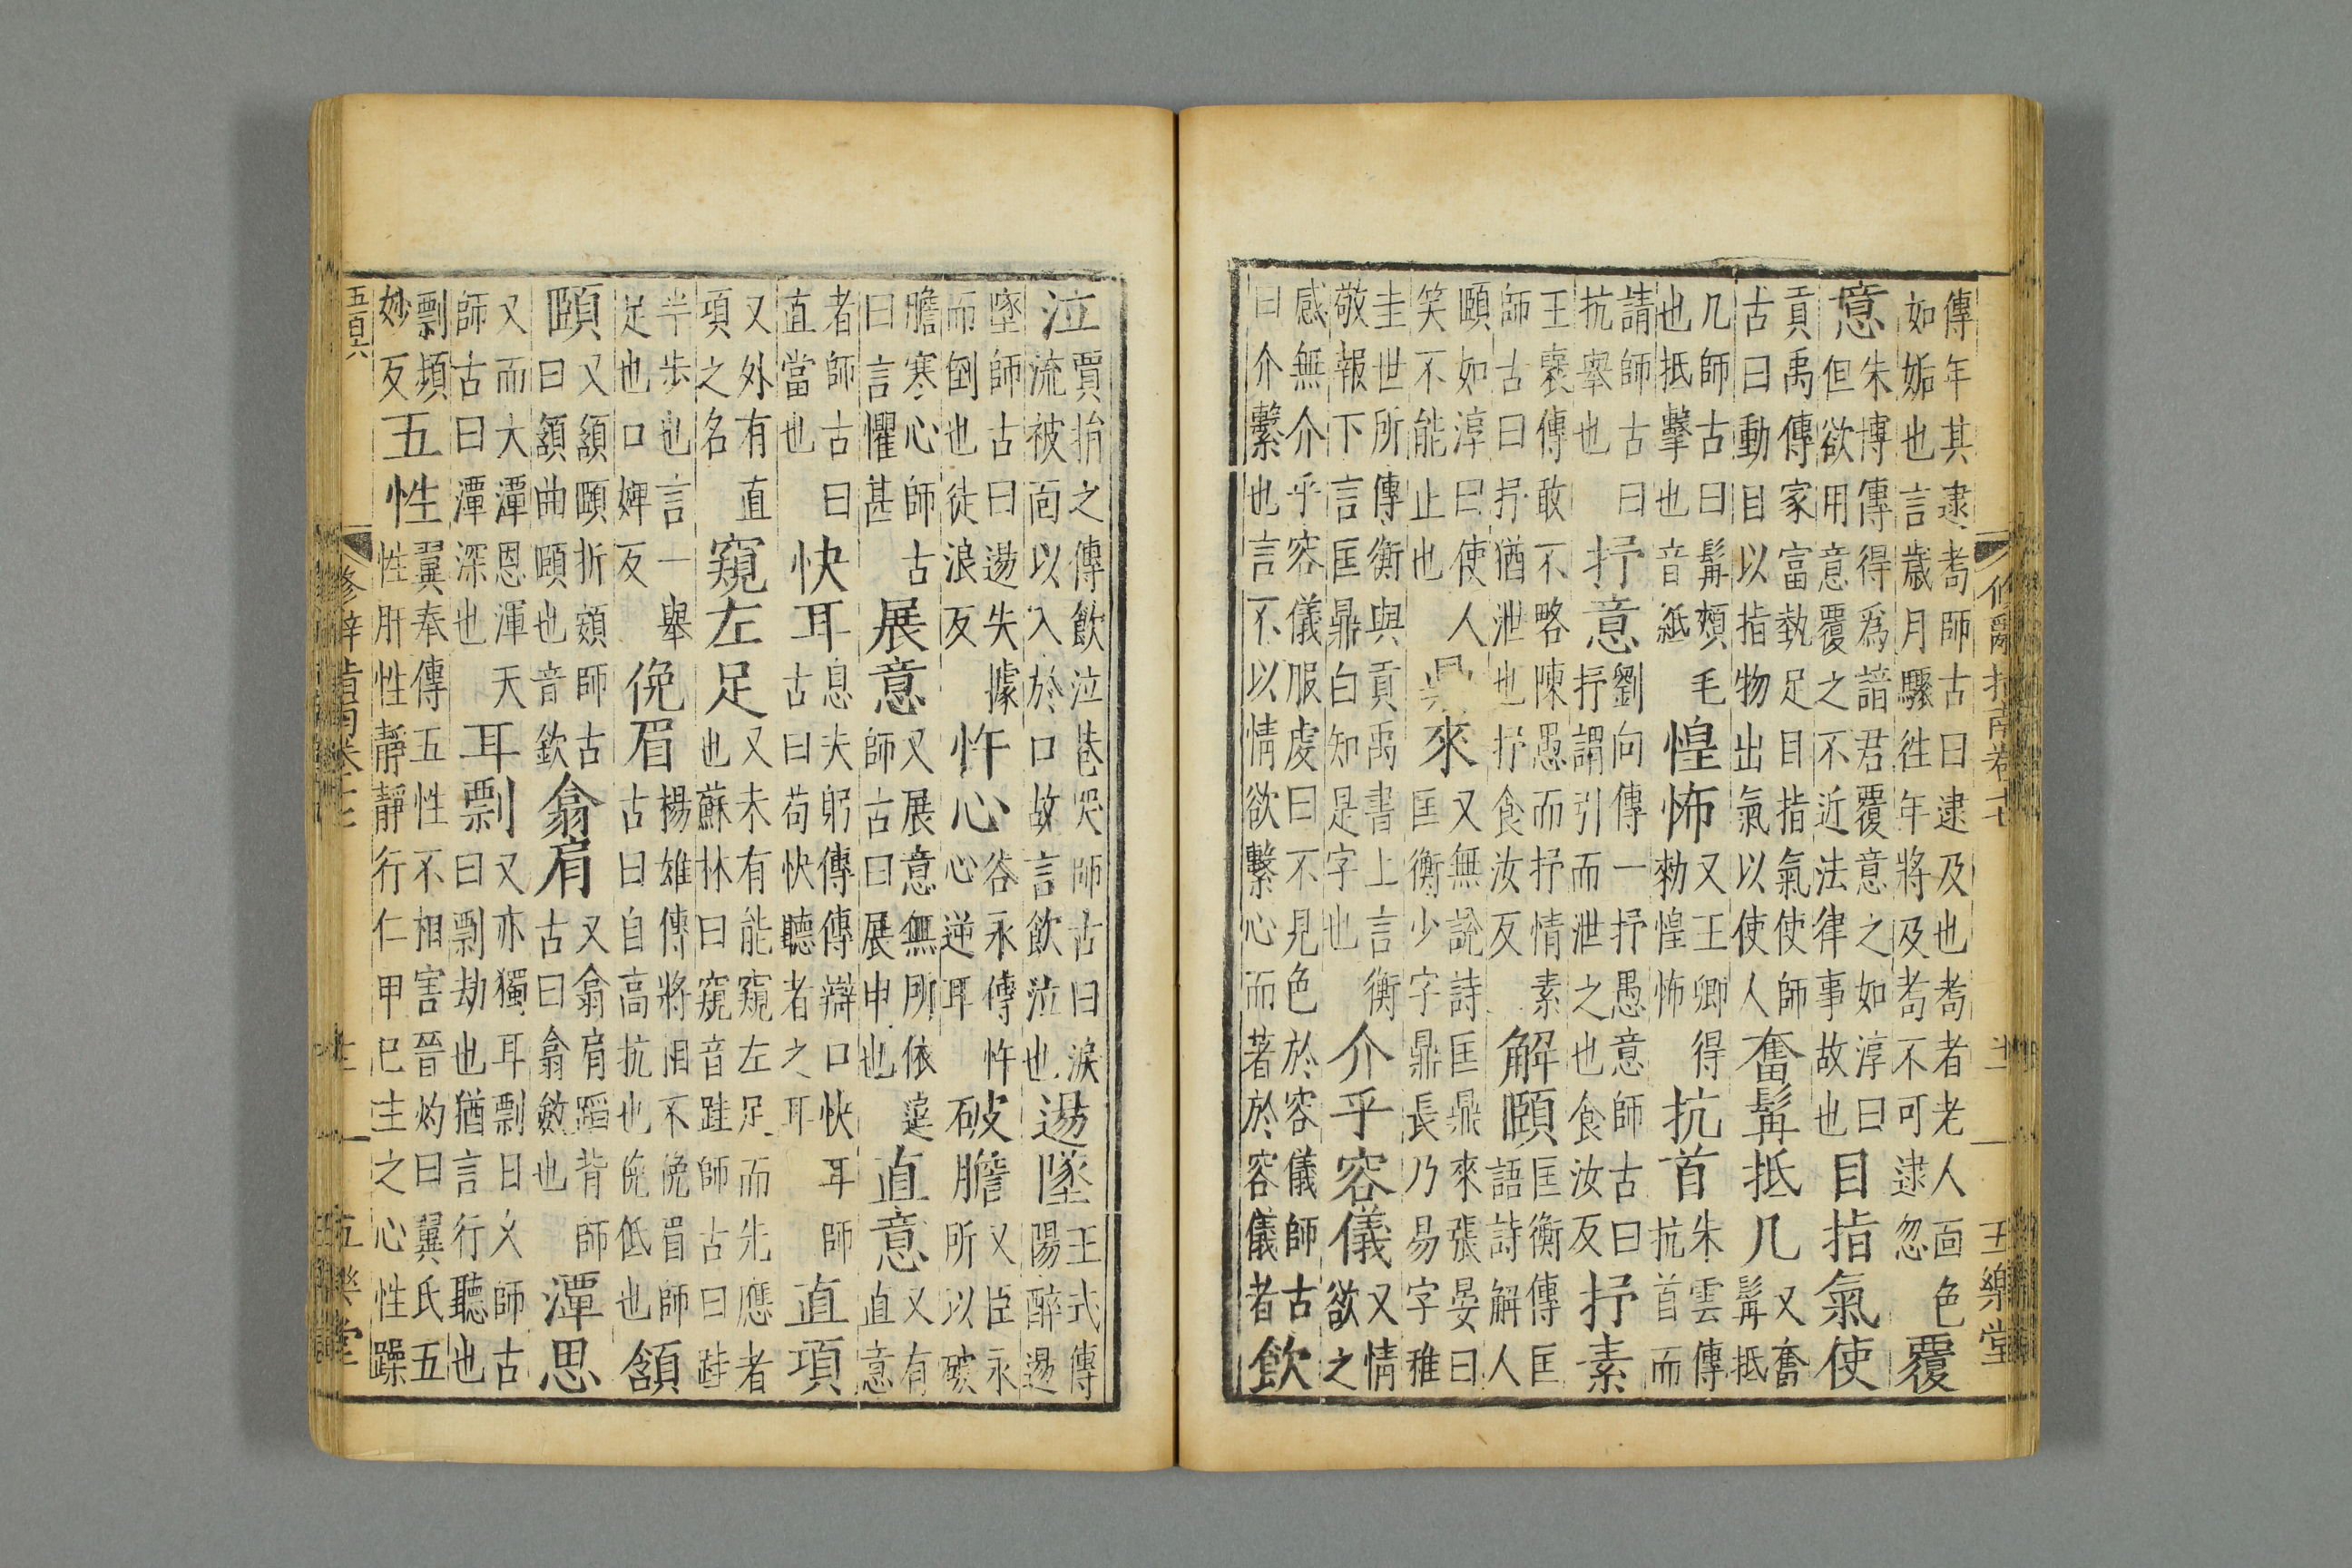 修辭指南卷七 五樂堂
傳年其逮耇師古曰逮及也耇者老人面色如姤也言歲月驟往年將及耇不可逮忽覆
意朱博傳得爲諳君覆意之如淳曰但欲用意覆之不近法律事故也目指氣使
貢禹傳家富埶足目指氣使師古曰動目以指物出氣以使人奮髯抵几又奮髯抵
几師古曰髯頰毛也抵擊也音紙惶怖又王卿得勑惶怖抗首朱雲傳抗首而
請師古曰抗舉也抒意劉向傳一抒愚意師古曰抒謂引而泄之也食汝反抒素
王襃傳敢不略陳愚而抒情素師古曰抒猶泄也抒食汝反解頤匡衡傳匡語詩解人
頤如淳曰使人笑不能止也鼎來又無說詩匡鼎來張晏曰匡衡少字鼎長乃易字稚
圭世所傳衡與貢禹書上言衡敬報下言匡鼎白知是字也介乎容儀又情欲之
感無介乎容儀服虔曰不見色於容儀師古曰介繫也言不以情欲繫心而著於容儀者飲
泣賈捐之傳飲泣巷哭師古曰淚流被面以入於口故言飲泣也逿墜王式傳陽醉逿
墜師古曰逿失據而倒也徒浪反忤心谷永傳忤心逆耳破膽又臣永所以破
膽寒心師古曰言懼甚展意又展意無所依違師古曰展申也直意又有直意
者師古曰直當也快耳息夫躬傳傳辯口快耳師古曰苟快聽者之耳直項
又外有直項之名窺左足又未有能窺左足而先應者也蘇林曰窺音跬師古曰跬
半步也言一舉足也口婢反俛眉揚雄傳將相不俛眉師古曰自高抗也俛低也頷
頤又頷頤折頞師古曰頷曲頤也音欽翕肩又翕肩蹈背師古曰翕斂也潭思
又而大潭恩渾天師古曰潭深也耳剽又亦獨耳剽日久師古曰剽劫也猶言行聽也
剽頻妙反五性翼奉傳五性不相害晉灼曰翼氏五性肝性靜靜行仁甲巳主之心性躁
五百六
修辭指南卷 五樂堂